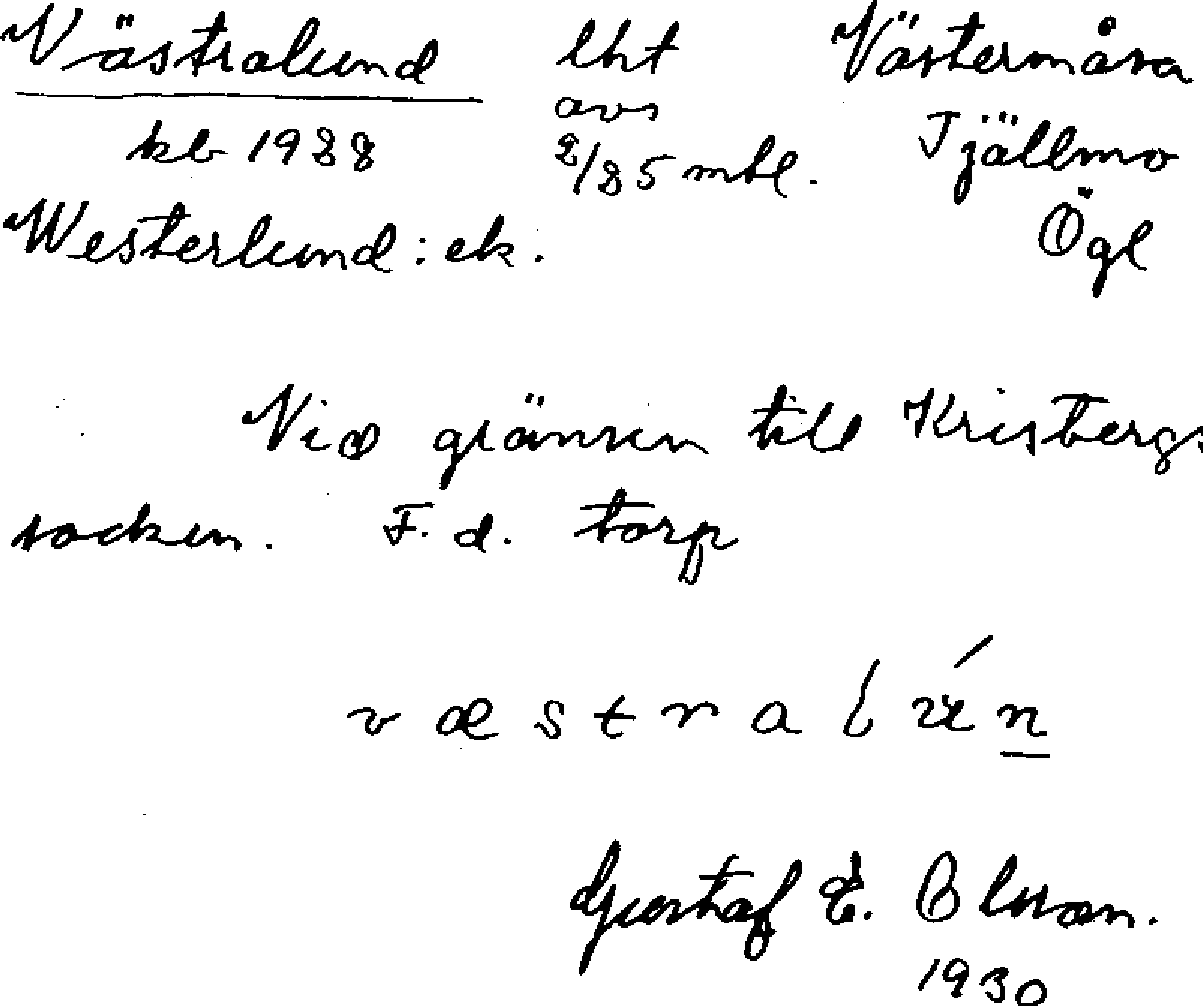 Västralund lht Västermåsa
avs
kb 1938 2/85 mtl. Tjällmo
Westerlund: ek. Ögl
Vid gränsen till Kristbergs
socken. F. d. torp
v æ s t r a l ú n
Gustaf E. Olsson.
1930